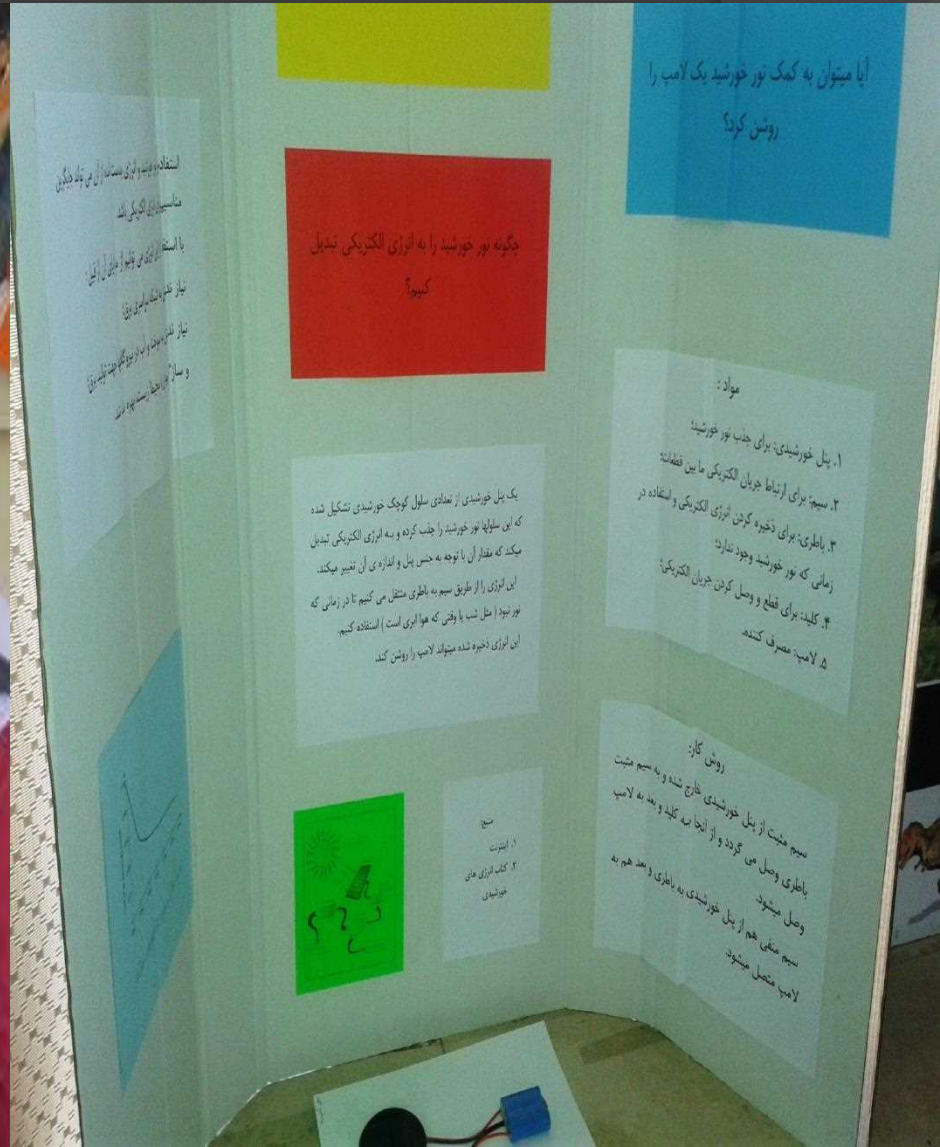 آیا میتوان به کمک نور خورشید یک لامپ را
روشن کرد؟
مواد :
۱. پنل خورشیدی: برای جذب نور خورشید؛
۲. سیم: برای ارتباط جریان الکتریکی ما بین قطعات؛
۳. باطری: برای ذخیره کردن انرژی الکتریکی و استفاده در
زمانی که نور خورشید وجود ندارد؛
۴. کلید: برای قطع و وصل کردن جریان الکتریکی؛
۵. لامپ: مصرف کننده.
روش کار:
سیم مثبت از پنل خورشیدی خارج شده و به سیم مثبت
باطری وصل می گردد و از آنجا به کلید و بعد به لامپ
وصل میشود.
سیم منفی هم از پنل خورشیدی به باطری و بعد هم به
لامپ متصل میشود.
چگونه نور خورشید را به انرژی الکتریکی تبدیل
کنیم؟
یک پنل خورشیدی از تعدادی سلول کوچک خورشیدی تشکیل شده
که این سلولها نور خورشید را جذب کرده و به انرژی الکتریکی تبدیل
میکند که مقدار آن با توجه به جنس پنل و اندازه ی آن تغییر میکند.
این انرژی را از طریق سیم به باطری منتقل می کنیم تا در زمانی که
نور نبود ( مثل شب یا وقتی که هوا ابری است ) استفاده کنیم.
این انرژی ذخیره شده میتواند لامپ را روشن کند.
منبع:
۱. اینترنت
۲. کتاب انرژی های
خورشیدی
استفاده و انرژی از آن می تواند جایگزین
الکتریکی باشد.
با انرژی می توانیم از مزایای آن از قبیل:
نیاز به شبکه سراسری برق؛
نیاز و آب در نیروگاه جهت تولید برق؛
و محیط زیست بهره